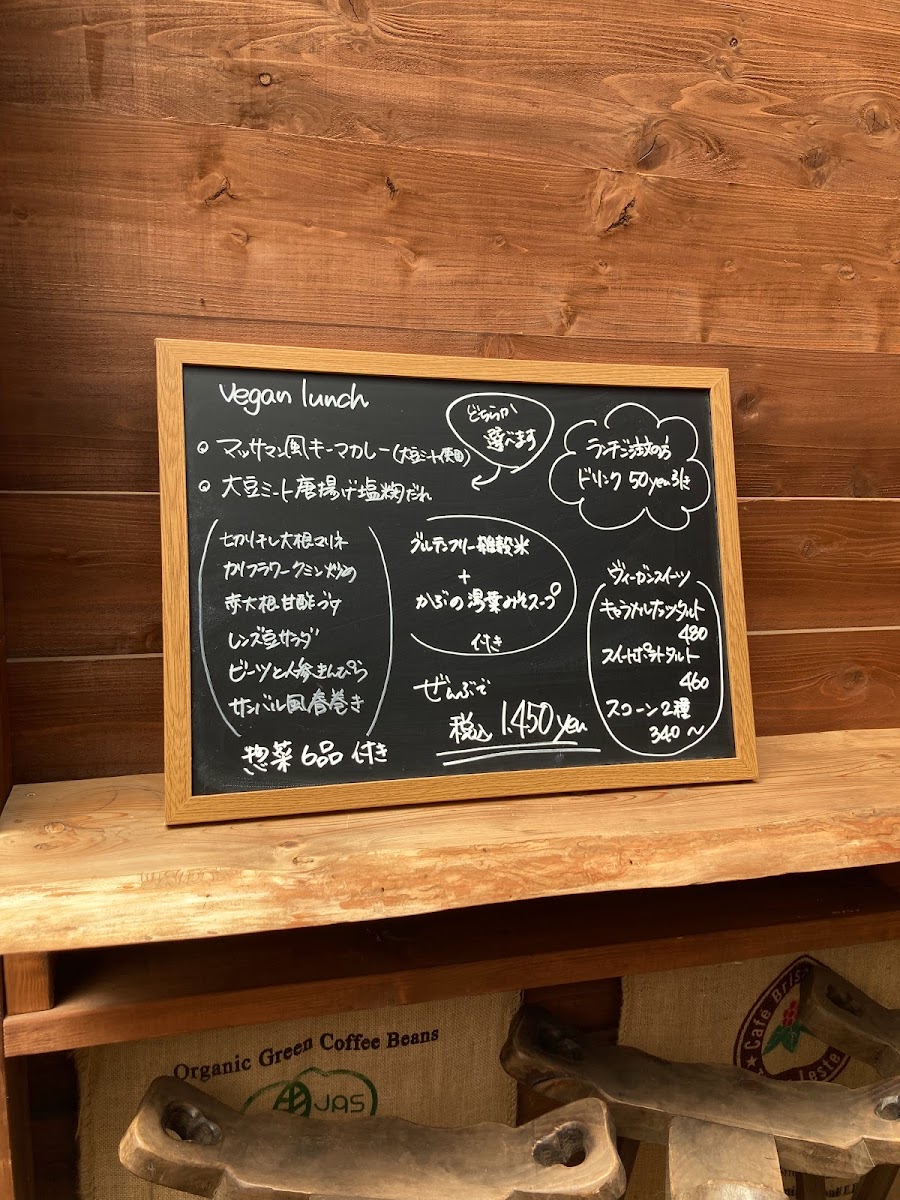 vegan lunch
どちらか
選べます
マッサマン風キーマカレー(大豆ミート使用)
大豆ミート唐揚げ塩麹だれ
ランチご注文の方
ドリンク 50yen引き
切り干し大根マリネ
カリフラワークミン炒め
赤大根甘酢づけ
レンズ豆サラダ
ビーツと人参きんぴら
サンバル風春巻き
惣菜6品付き
グルテンフリー雑穀米
+
かぶの湯葉みそスープ
付き
ぜんぶで
税込 1.450yen
ヴィーガンスイーツ
キャラメルナッツタルト
480
スイートポテトタルト
460
スコーン2種
340~
Organic Green Coffee Beans
JAS
Café Bris
Leste